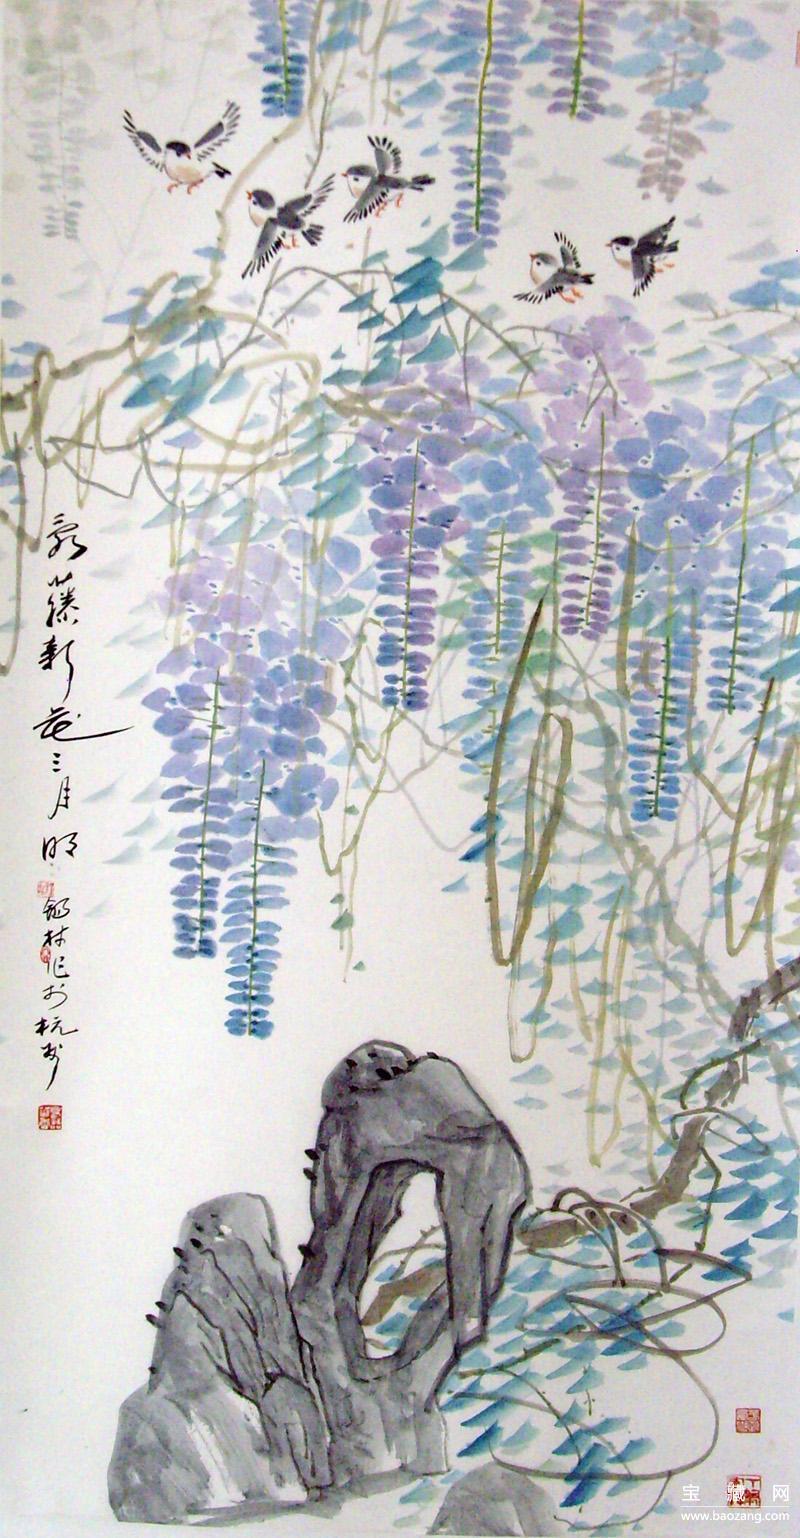 藤新花三月明
林作於杭州
宝藏网
www.baozang.com